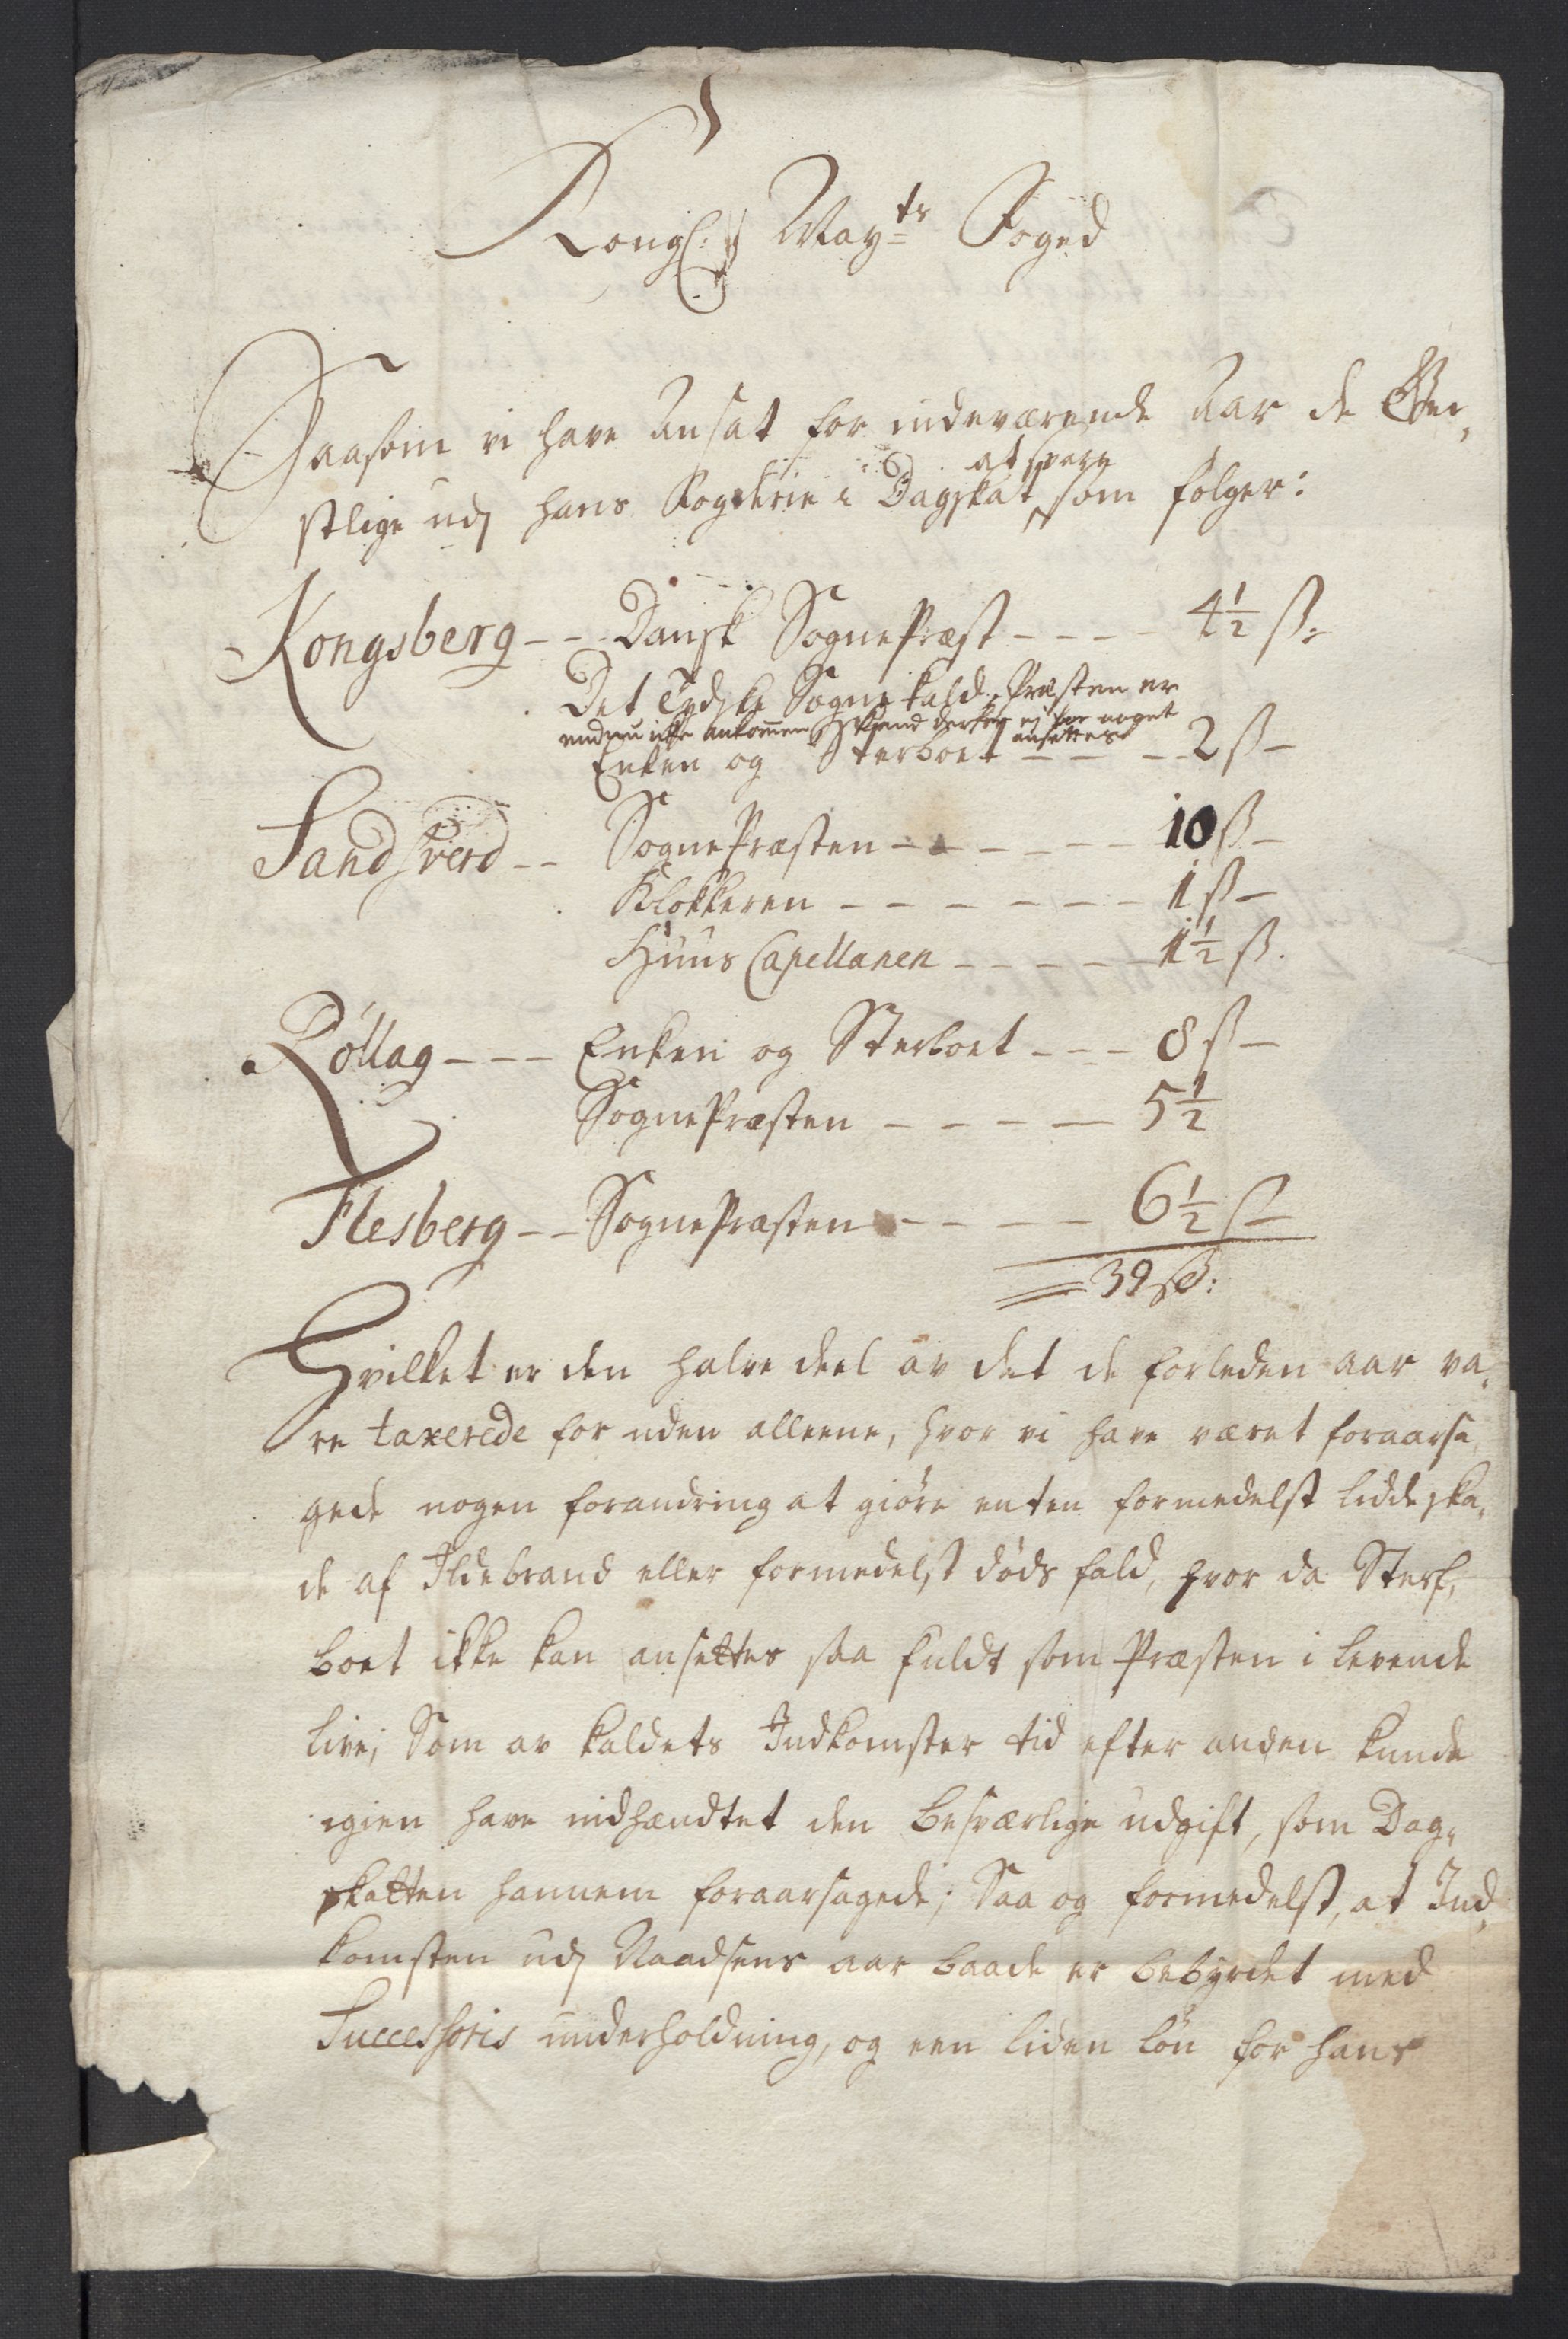 Kongl: Mayts Foged
Saasom vi have Ansat for indeværende Aar de Gei,
at svare
stlige udj hans Fogderie i Dagskat som følger:
Kongsberg - - - Dansk SognePræst - - - - 4½ ß:
Det Tydske Sognekald, Præsten er
endnu ikke ankommen, kand derfor ej for noget
ansettes
Enken og Sterboet - - - - 2 ß -
Sandsverd - - SognePræsten - - - - - - 10 ß -
Klokkeren - - - - - - - 1 ß -
Huus Capellanen - - - - - 1½ ß.
Rollag - - - Enken og Sterboet - - - 8 ß -
SognePræsten - - - - - 5½
Flesberg - - SognePræsten - - - - - 6½ ß
39 ß:
Hvilket er den halve deel av det de forleden aar va,
re taxerede for uden alleene, hvor vi have været foraarsa,
gede nogen forandring at giøre enten formedelst lidde ska,
de af Ildebrand eller formedelst døds fald, hvor da Sterf,
boet ikke kan ansettes saa fuldt som Præsten i levende
live; Som av kaldets Indkomster tid efter anden kunde
igien have indhændtet den besværlige udgift, som Dag,
skatten hannem foraarsagede; Saa og formedelst, at Ind,
komsten udj Naadsens aar baade er bebyrdet med
Successoris underholdning, og een liden løn for hans